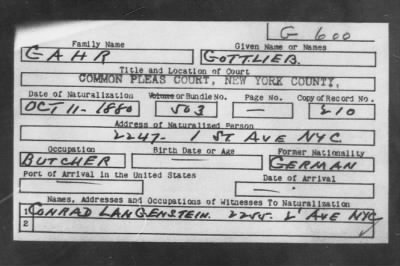 G 600
Family Name Given Name or Names
GAHR GOTTLIEB.
Title and Location of Court
COMMON PLEAS COURT, NEW YORK COUNTY,
Date of Naturalization Volume or Bundle No. Page No. Copy of Record No.
OCT 11-1880 503 — 210
Address of Naturalized Person
2247- 1 ST AVE NYC
Occupation Birth Date or Age Former Nationality
BUTCHER — GERMAN
Port of Arrival in the United States Date of Arrival
— —
Names, Addresses and Occupations of Witnesses To Naturalization
1 CONRAD LANGENSTEIN. 2255. 2' AVE NYC
2